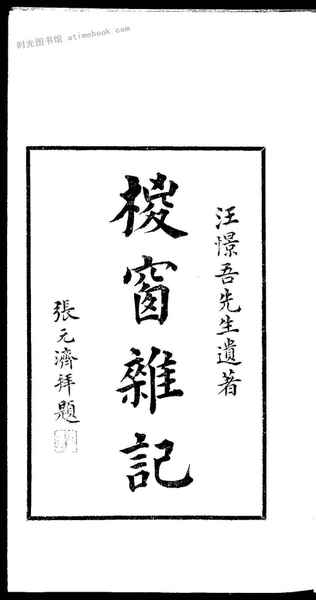 时光图书馆 atimebook.com
汪憬吾先生遺著
椶窗雜記
張元濟拜題